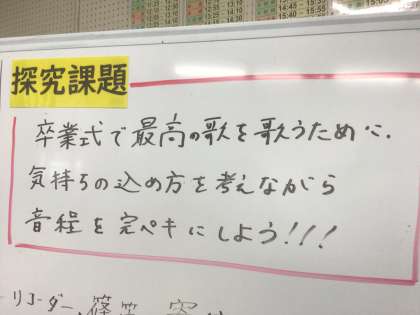 探究課題
卒業式で最高の歌を歌うために、
気持ちの込め方を考えながら
音程を完ペキにしよう!!!
リコーダー、篠笛